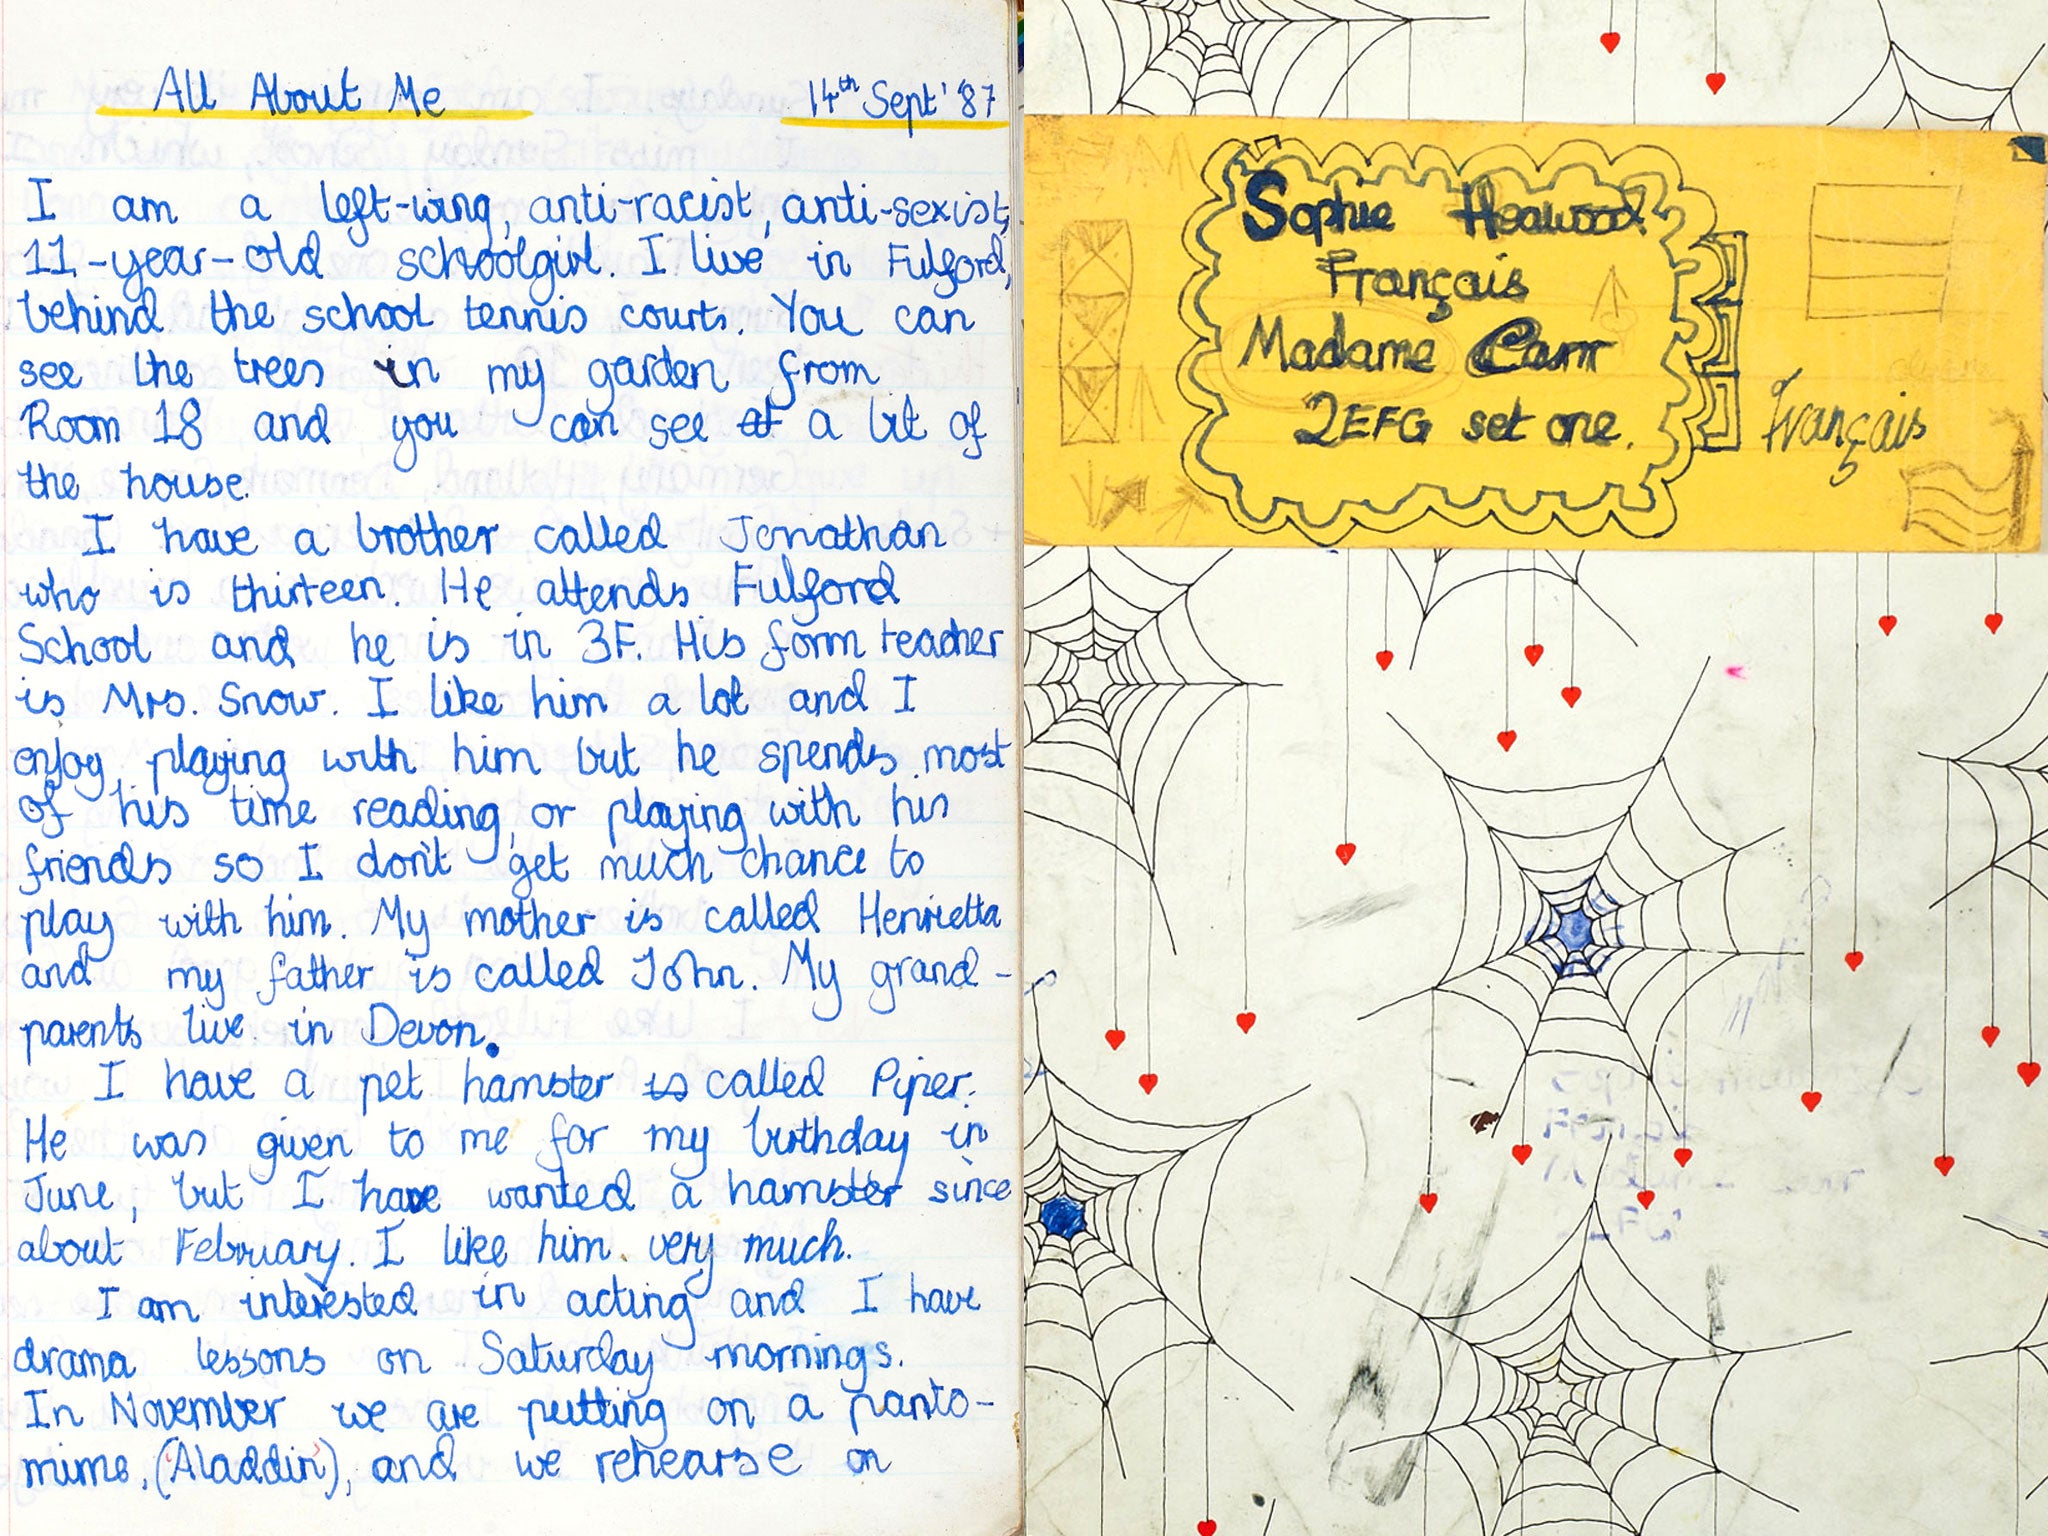 All About Me 14th Sept '87
I am a left-wing, anti-racist, anti-sexist,
11-year-old schoolgirl. I live in Fulford,
behind the school tennis courts. You can
see the trees in my garden from
Room 18 and you can see at a bit of
the house.
I have a brother called Jonathan
who is thirteen. He attends Fulford
School and he is in 3F. His form teacher
is Mrs. Snow. I like him a lot and I
enjoy playing with him but he spends most
of his time reading, or playing with his
friends so I don't get much chance to
play with him. My mother is called Henrietta
and my father is called John. My grand-
parents live in Devon.
I have a pet hamster is called Piper.
He was given to me for my birthday in
June, but I have wanted a hamster since
about February. I like him very much.
I am interested in acting and I have
drama lessons on Saturday mornings.
In November we are putting on a panto-
mime, (Aladdin), and we rehearse on
Sophie Heawood
Français
Madame Carr
2EFG set one.
Français